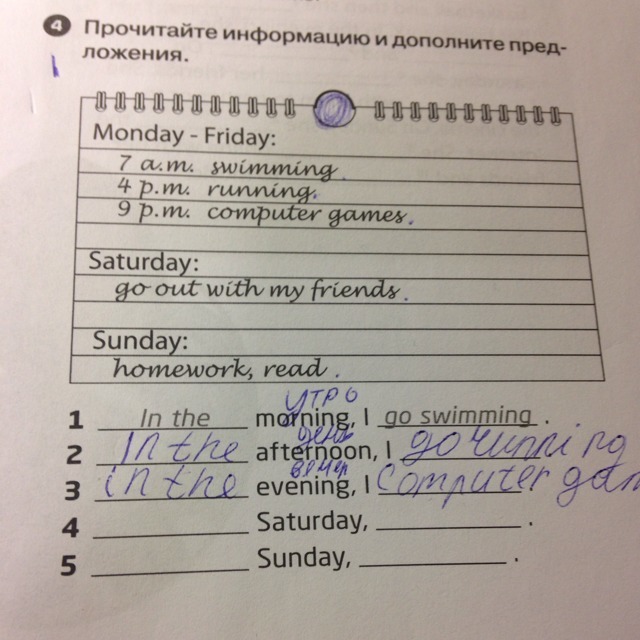 4 Прочитайте информацию и дополните пред-
ложения.
Monday - Friday:
7 a.m. swimming.
4 p.m. running.
9 p.m. computer games.
Saturday:
go out with my friends.
Sunday:
homework, read.
утро
1 In the morning, I go swimming.
день
2 In the afternoon, I go running
вечер
3 in the evening, I computer gam
4 ____________ Saturday, ____________.
5 ____________ Sunday, ____________.